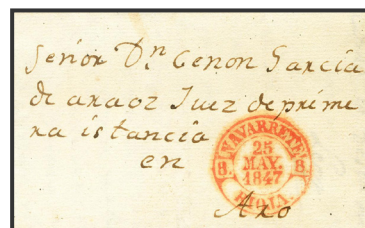 Señor Dn Cenon Garcia
de araoz Juez deprime
ra istancia
en
Axo
NAVARRETE
25
MAY.
1847
8. 8.
RIOJA.